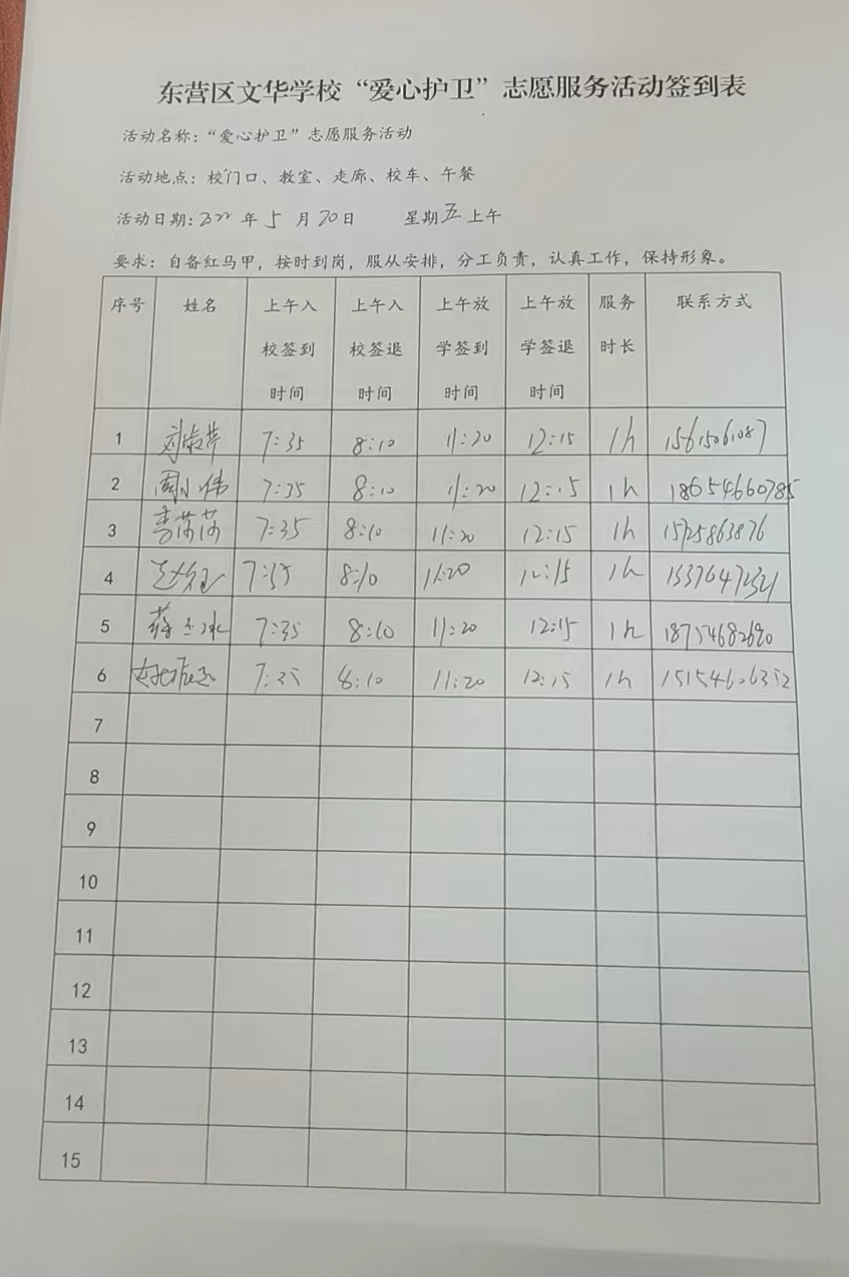 东营区文华学校“爱心护卫”志愿服务活动签到表
活动名称：“爱心护卫”志愿服务活动
活动地点：校门口、教室、走廊、校车、午餐
活动日期：2022年5月20日 星期五上午
要求：自备红马甲，按时到岗，服从安排，分工负责，认真工作，保持形象。
序号 姓名 上午入校签到时间 上午入校签退时间 上午放学签到时间 上午放学签退时间 服务时长 联系方式
1 7:35 8:10 11:20 12:15 1h
2 周小伟 7:35 8:10 11:20 12:15 1h 18654660785
3 李莎莎 7:35 8:10 11:20 12:15 1h
4 7:35 8:10 11:20 12:15 1h
5 7:35 8:10 11:20 12:15 1h 18754682690
6 7:35 8:10 11:20 12:15 1h 15154606352
7
8
9
10
11
12
13
14
15